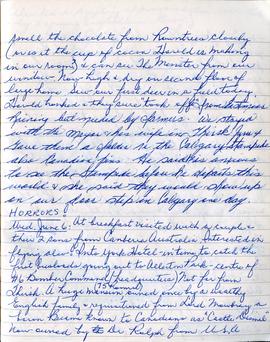 smell the chocolate from Rowntrees closeby
(or is it the cup of cocoa Harold is making
in our room?) & can see The Minster from our
window. Now high & dry on second floor of
large home. Saw our first deer in a field today.
Harold honked & they sure took off
Rieving but missed by farmers. We stayed
with the Mayor & his wife in Thirsk & gave
them a folder on the Calgary Stampede
also Canadian pins. He said he's anxious
to see the Stampede before he departs this
world & she said they would show up
on our door step in Calgary one day.
HORRORS!
Wed. June 6: At breakfast visited with a couple &
their 2 sons from Canberra Australia. Interested in
flying also. Into York Hotel in time to catch the
first busloads going out to Allerton Park - centre of
#6 Bomber Command headquarters. Not far from
Thirsk. A huge mansion owned once by a wealthy
75 rooms
English family & requisitioned from Lord Mowbray, a
baron. Became known to Canadians as "Castle Dismal"
Now owned by a Dr. Ralph from U.S.A